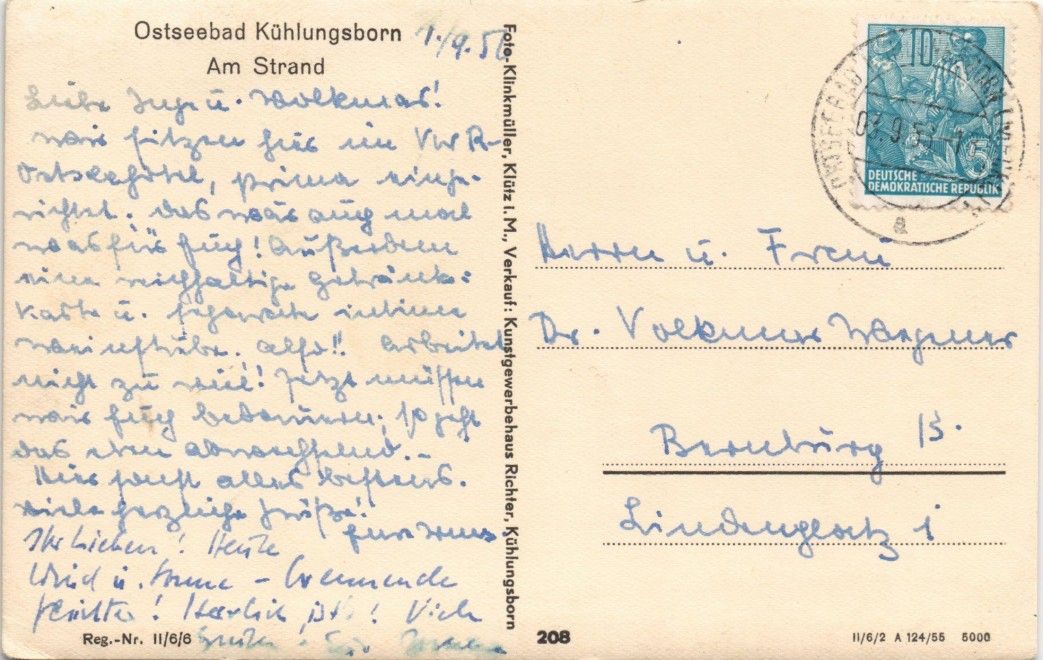 Ostseebad Kühlungsborn
Am Strand
1./9.56
Liebe Inge u. Volkmar!
wir sitzen hier im
Ostseehotel, prima einge-
richtet. Das wär auch mal
was für Euch! Außerdem
eine reichhaltige Getränke-
karte u. intime
Weinstube. Also!! Arbeitet
nicht zu viel! Jetzt müssen
wir Euch bedauern; so geht
das eben abwechselnd. -
Hier sonst alles bestens.
Viele herzliche Grüße!
Ihr Lieben! Heute
Wind u. Sonne -
! Herrlich ist's! Viele
Reg.-Nr. II/6/6
Foto-Klinkmüller, Klütz i. M., Verkauf: Kunstgewerbehaus Richter, Kühlungsborn
208
10
5
DEUTSCHE
DEMOKRATISCHE REPUBLIK
OSTSEEBAD
a
Herrn u. Frau
Dr. Volkmar Wagener
Bernburg /S.
Lindenplatz 1
II/6/2 A 124/55 5000